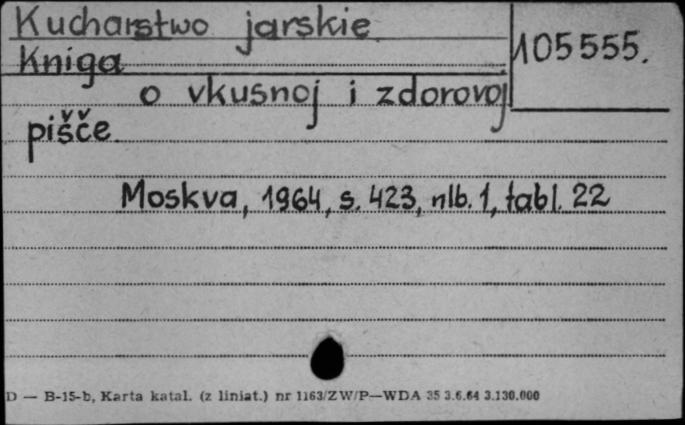 Kucharstwo jarskie
105555.
Kniga
o vkusnoj i zdorovoj
pišče
Moskva, 1964, s. 423, nlb. 1, tabl. 22
D — B-15-b, Karta katal. (z liniat.) nr 1163/ZW/P—WDA 35 3.6.64 3.130.000